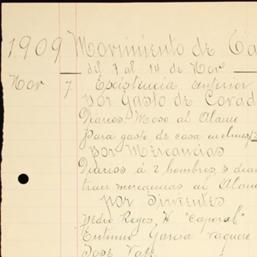 1909 Movimiento de Ca
del 7 al 14 de Nov
Nov 7 Existencia anterior
Por Gasto de Corad
Diarios Mozo al Alamo
Para gasto de casa
Por Mercancias
Diarios á 2 hombres, 3 dias
traer mercancias al Alamo
Por Sirvientes
Pedro Reyes H. "Caporal"
Eutimio Garcia Vaquero
José Valt